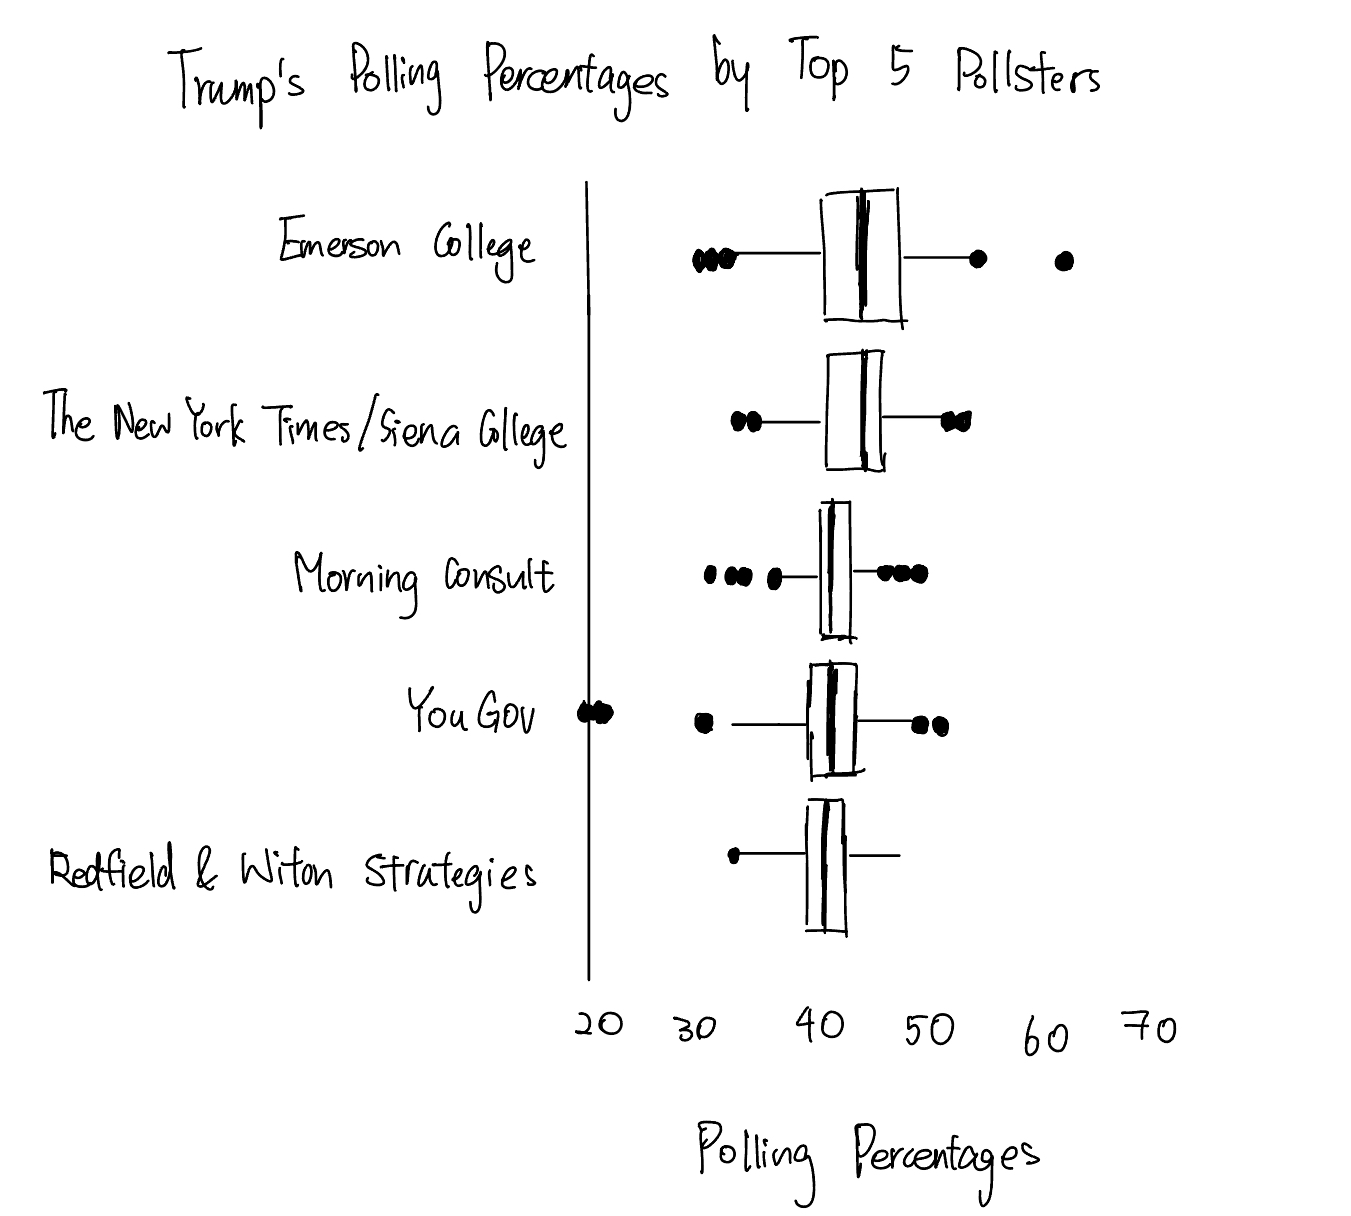 Trump's Polling Percentages by Top 5 Pollsters
Emerson College
The New York Times/Siena College
Morning Consult
YouGov
Redfield & Witon Strategies
20 30 40 50 60 70
Polling Percentages